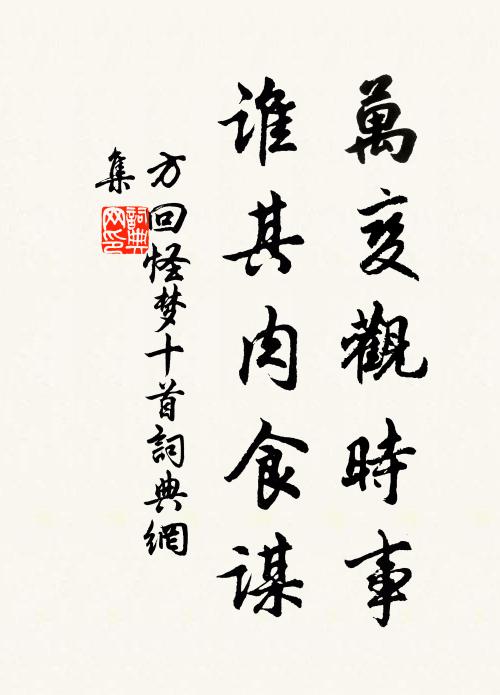 萬変觀時事
誰其肉食謀
方回怪梦十首詞典網
集
詞典
网印